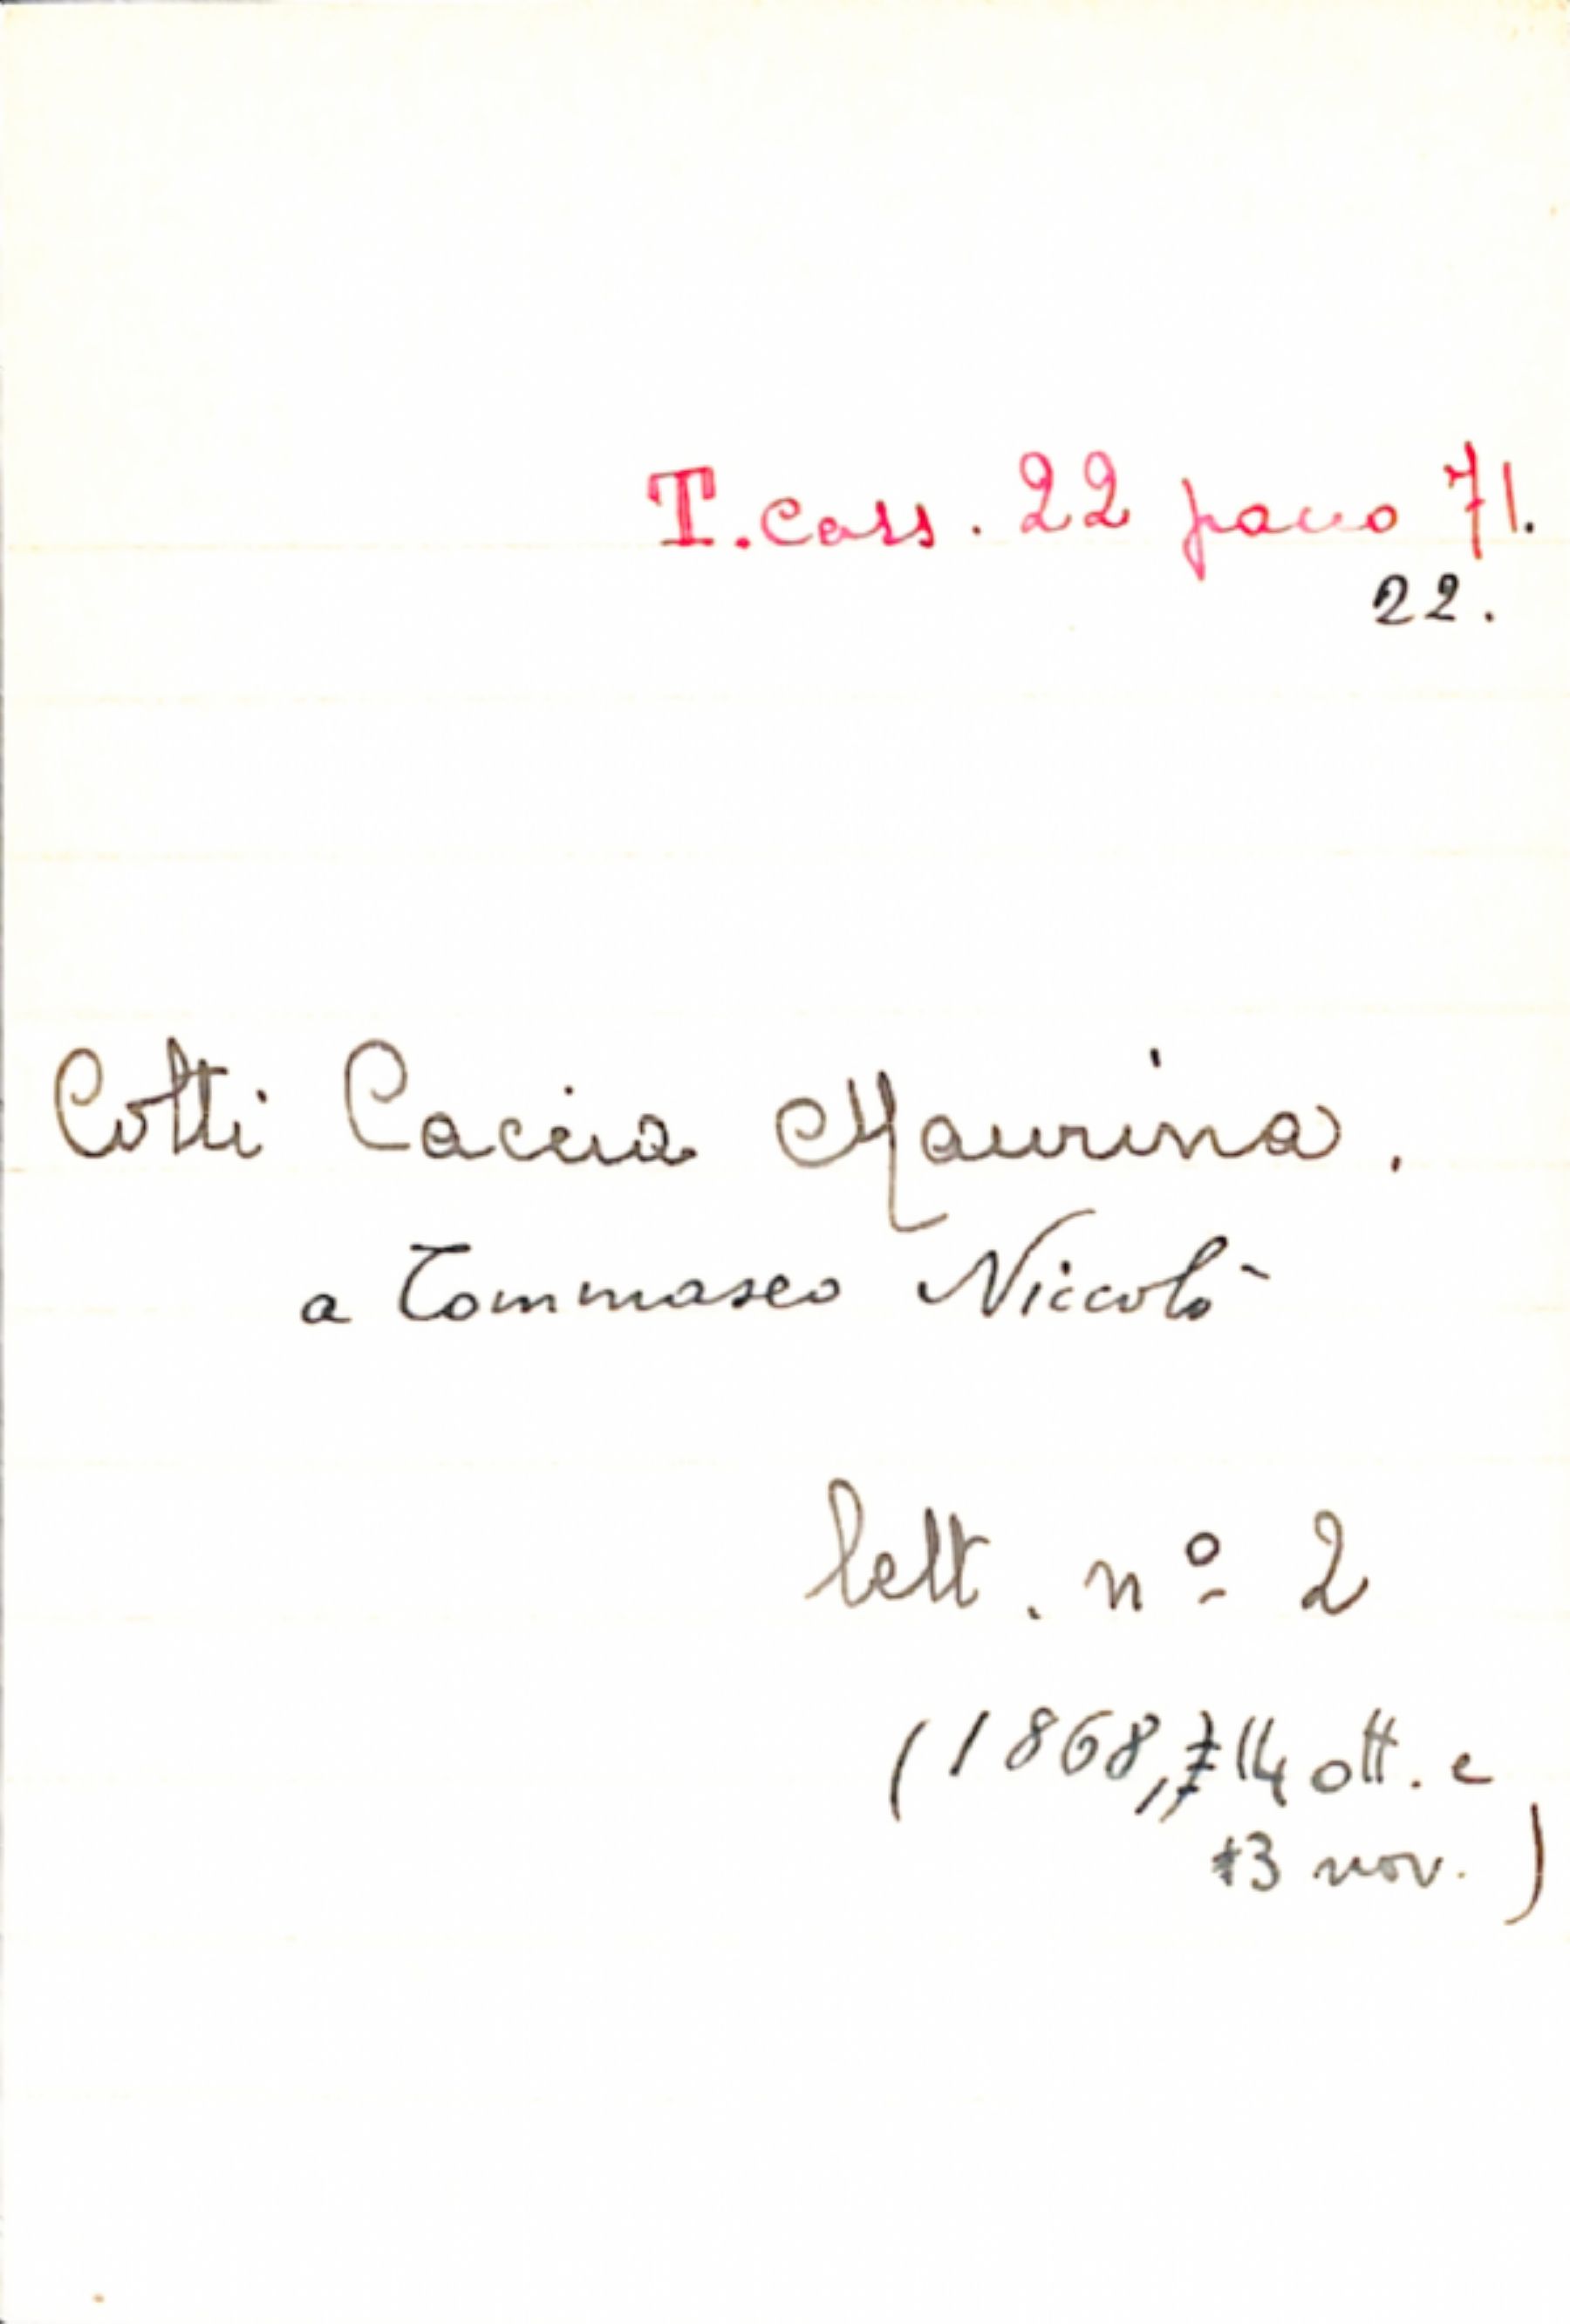 T. cass. 22 pacco 71.
22.
Cotti Caccia Maurina.
a Tommaseo Niccolò
lett. nº 2
(1868, 14 ott. e
13 nov.)